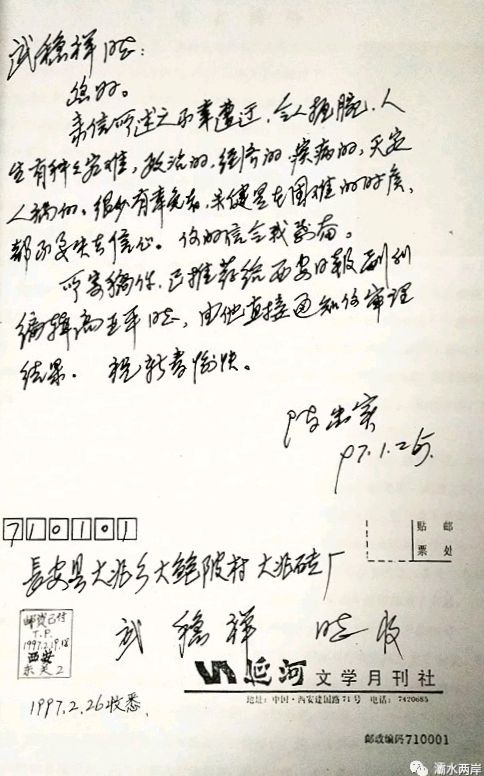 武稳祥同志：
您好。
来信所述之不幸遭迂，令人扼腕。人
生有种之灾难，政治的，经济的，疾病的，天灾
人祸的。很少有幸免者，关键是在困难的时候，
都不要失去信心。你的信令我感
所寄稿件，已推荐给西安日报副刊
编辑高亚平同志，由他直接通知你审理
结果。 祝新春愉快。
陈忠实
97.1.26.
710101
贴 邮
票 处
長安县大兆乡大鲍陂村 大兆砖厂
武 稳 祥 同志 收
邮资已付
T.P.
西安
延河 文学月刊社
地址：中国·西安建国路71号 电话：7420685
1997.2.26收悉.
邮政编码710001
灞水两岸